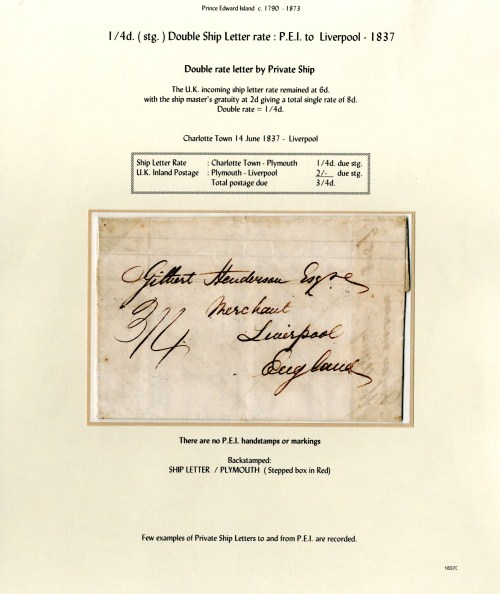 Prince Edward Island c. 1790 - 1873
1/4d. ( stg. ) Double Ship Letter rate : P.E.I. to Liverpool - 1837
Double rate letter by Private Ship
The U.K. incoming ship letter rate remained at 6d.
with the ship master's gratuity at 2d giving a total single rate of 8d.
Double rate = 1/4d.
Charlotte Town 14 June 1837 - Liverpool
Ship Letter Rate : Charlotte Town - Plymouth 1/4d. due stg.
U.K. Inland Postage : Plymouth - Liverpool 2/- due stg.
Total postage due 3/4d.
Gilbert Henderson Esqre
3/4 Merchant
Liverpool
England
There are no P.E.I. handstamps or markings
Backstamped:
SHIP LETTER / PLYMOUTH ( Stepped box in Red)
Few examples of Private Ship Letters to and from P.E.I. are recorded.
1837C